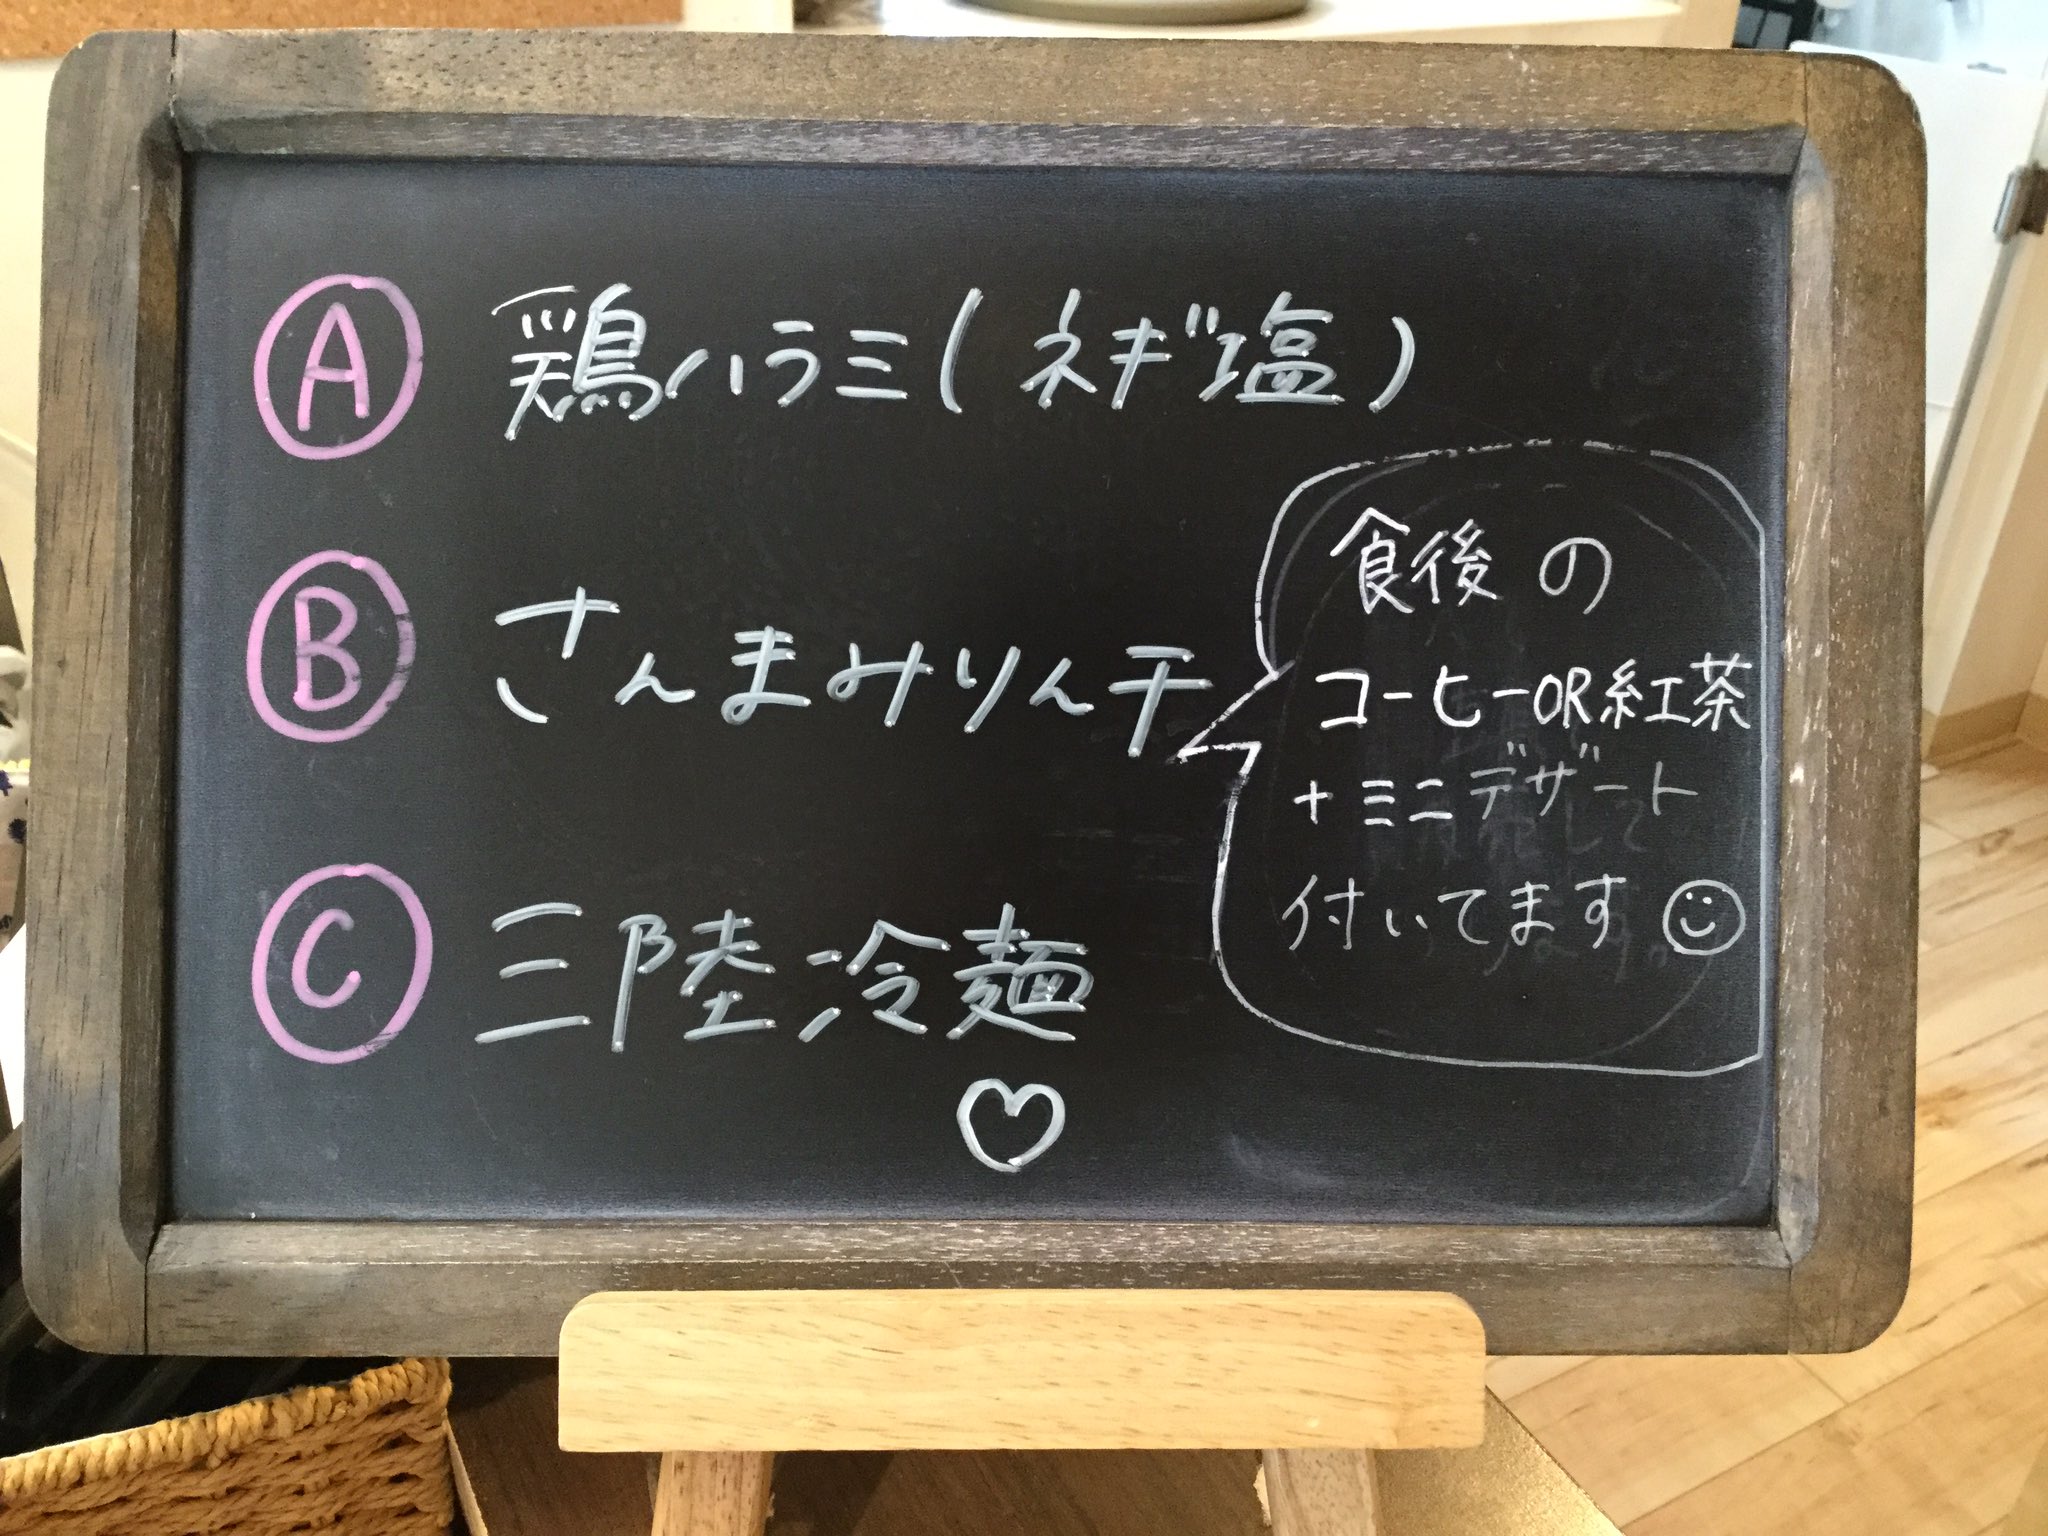 A 鶏ハラミ(ネギ塩)
B さんまみりん干
C 三陸冷麺
食後の
コーヒーOR紅茶
+ミニデザート
付いてます